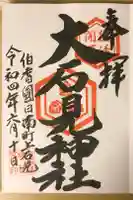 奉拝
大石見神社
伯耆國日南町上石見
令和四年六月十日